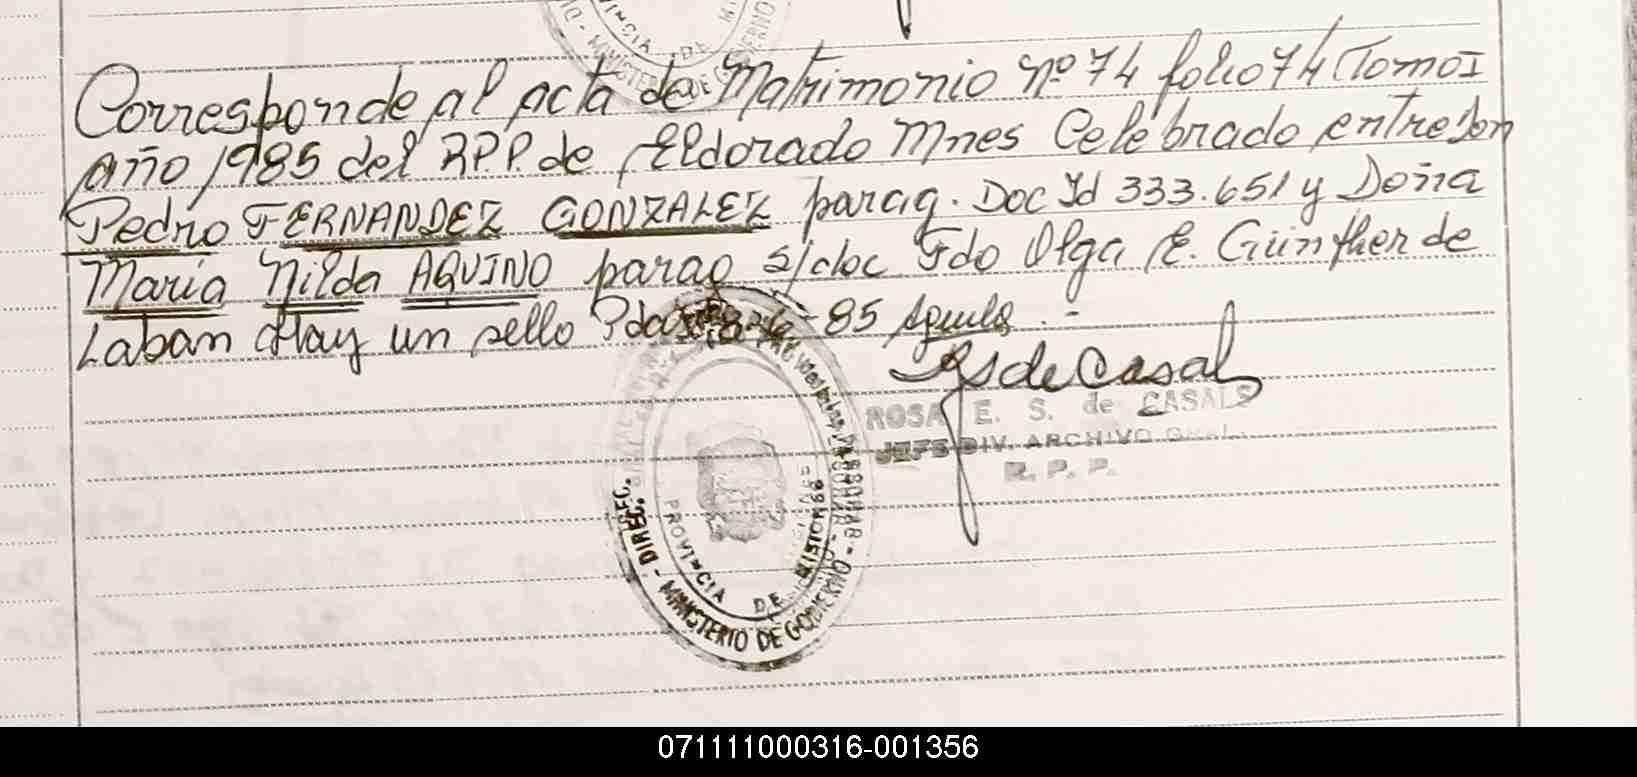 VINCIA DE MI
DI - MINISTERIO DE GOBIERNO
Corresponde al acta de Matrimonio Nº 74 folio 74 Tomo I
año 1985 del R.P.P. de Eldorado Mnes Celebrado entre Don
Pedro FERNANDEZ GONZALEZ parag. Doc Id 333.651 y Doña
María Nilda AQUINO parag s/doc Fdo Olga E. Günther de
Laban Hay un sello Pdas 85
RS de Casals
ROSA E. S. de CASALS
JEFE DIV. ARCHIVO GRAL.
R. P. P.
PROVINCIA DE MISIONES
DIREC. - MINISTERIO DE GOBIERNO -
071111000316-001356